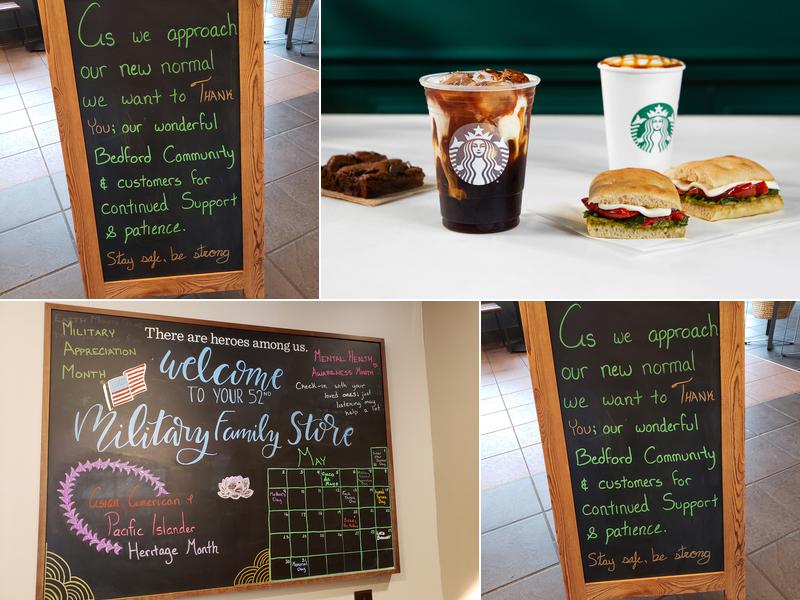 As we approach
our new normal
we want to THANK
You; our wonderful
Bedford Community
& customers for
continued Support
& patience.
Stay safe, be strong
MILITARY
APPRECIATION
MONTH
There are heroes among us.
welcome
TO YOUR 52ND
Military Family Store
MENTAL HEALTH
AWARENESS MONTH
Check-in with your
loved ones; just
listening may
help a lot
MAY
Cinco
de
Mayo
Mother's
Day
Memorial
Day
Asian American &
Pacific Islander
Heritage Month
As we approach
our new normal
we want to THANK
You; our wonderful
Bedford Community
& customers for
continued Support
& patience.
Stay safe, be strong